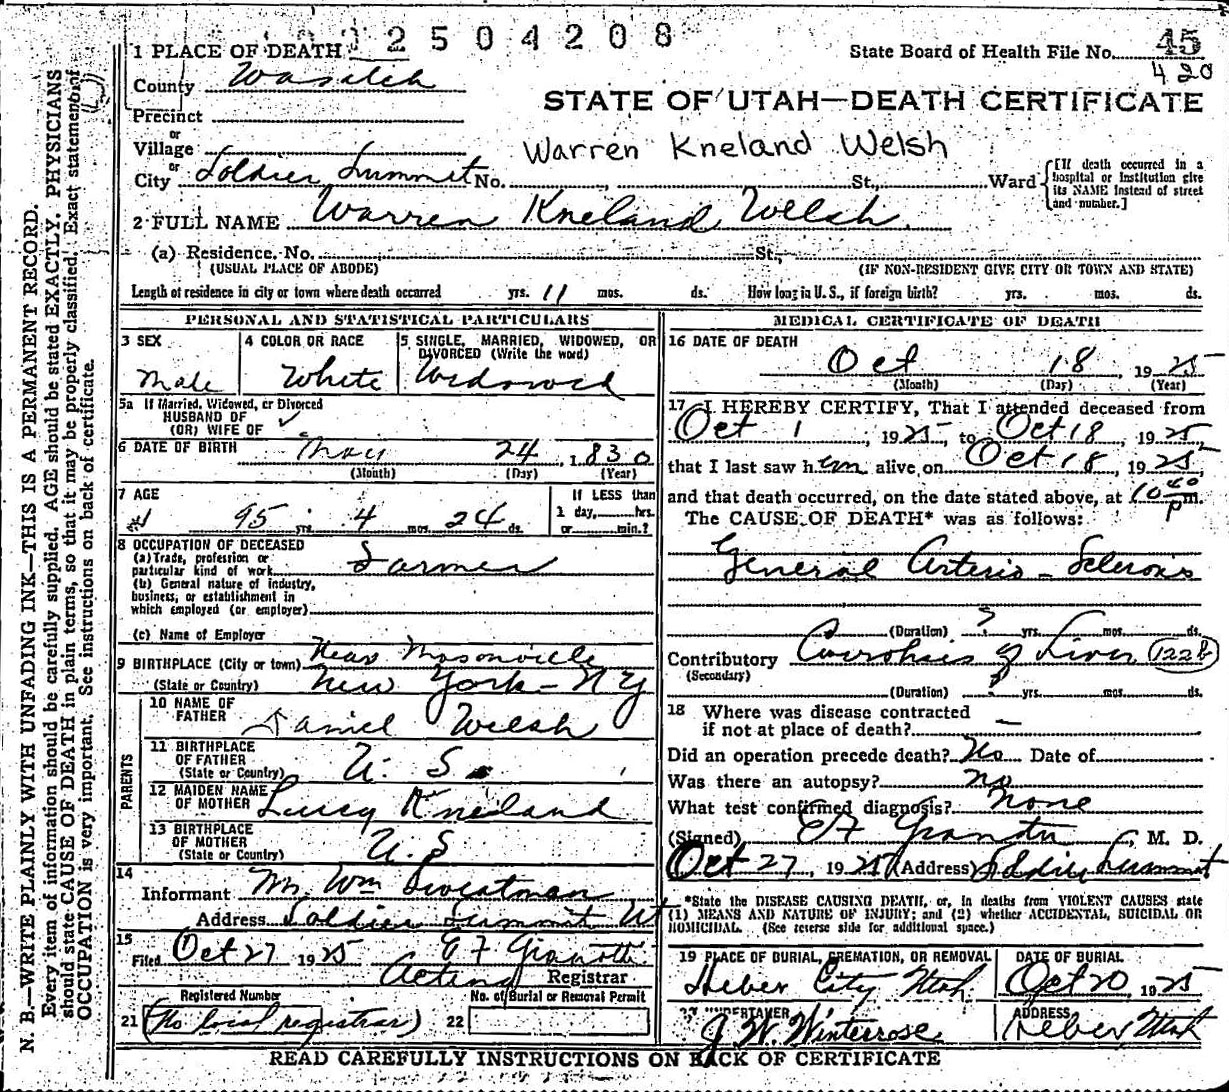 2504208
State Board of Health File No. 45
420
1 PLACE OF DEATH
County Wasatch
STATE OF UTAH—DEATH CERTIFICATE
Precinct
or
Village
Warren Kneland Welsh
or
City Soldier Summit No. St., Ward
[If death occurred in a hospital or institution give its NAME instead of street and number.]
2 FULL NAME Warren Kneland Welsh
(a) Residence. No. St.,
(USUAL PLACE OF ABODE) (IF NON-RESIDENT GIVE CITY OR TOWN AND STATE)
Length of residence in city or town where death occurred yrs. 11 mos. ds. How long in U. S., if foreign birth? yrs. mos. ds.
PERSONAL AND STATISTICAL PARTICULARS
3 SEX
Male
4 COLOR OR RACE
White
5 SINGLE, MARRIED, WIDOWED, OR
DIVORCED (Write the word)
Widowed
5a If Married, Widowed, or Divorced
HUSBAND OF
(OR) WIFE OF
6 DATE OF BIRTH May 24 1830
(Month) (Day) (Year)
7 AGE
95 yrs. 4 mos. 24 ds.
If LESS than
1 day, hrs.
or min.?
8 OCCUPATION OF DECEASED
(a) Trade, profession or
particular kind of work Farmer
(b) General nature of industry,
business, or establishment in
which employed (or employer)
(c) Name of Employer
9 BIRTHPLACE (City or town) Near Masonville
(State or Country) New York - NY
PARENTS
10 NAME OF
FATHER Daniel Welsh
11 BIRTHPLACE
OF FATHER
(State or Country) U. S.
12 MAIDEN NAME
OF MOTHER Lucy Kneland
13 BIRTHPLACE
OF MOTHER
(State or Country) U. S
14
Informant Mr. Wm Sweatman
Address Soldier Summit Ut
15
Filed Oct 27 1925 E F Gianotti
Acting Registrar
Registered Number
21 (No local registrar)
No. of Burial or Removal Permit
22
MEDICAL CERTIFICATE OF DEATH
16 DATE OF DEATH
Oct 18, 1925
(Month) (Day) (Year)
17 I HEREBY CERTIFY, That I attended deceased from
Oct 1, 1925, to Oct 18, 1925,
that I last saw him alive on Oct 18, 1925
and that death occurred, on the date stated above, at 10 40 P m.
The CAUSE OF DEATH* was as follows:
General Arterio - Sclerosis
(Duration) ? yrs. mos. ds.
Contributory Cirrohsis of Liver 122B
(Secondary)
(Duration) ? yrs. mos. ds.
18 Where was disease contracted
if not at place of death? —
Did an operation precede death? No Date of
Was there an autopsy? no
What test confirmed diagnosis? none
(Signed) E F Gianotti, M. D.
Oct 27, 1925 (Address) Soldier Summit
*State the DISEASE CAUSING DEATH, or, in deaths from VIOLENT CAUSES state
(1) MEANS AND NATURE OF INJURY; and (2) whether ACCIDENTAL, SUICIDAL OR
HOMICIDAL. (See reverse side for additional space.)
19 PLACE OF BURIAL, CREMATION, OR REMOVAL
Heber City Utah
DATE OF BURIAL
Oct 20, 1925
UNDERTAKER
J. W. Winterrose
ADDRESS
Heber Utah
READ CAREFULLY INSTRUCTIONS ON BACK OF CERTIFICATE
N. B.—WRITE PLAINLY WITH UNFADING INK—THIS IS A PERMANENT RECORD.
Every item of information should be carefully supplied. AGE should be stated EXACTLY. PHYSICIANS
should state CAUSE OF DEATH in plain terms, so that it may be properly classified. Exact statement of
OCCUPATION is very important. See instructions on back of certificate.